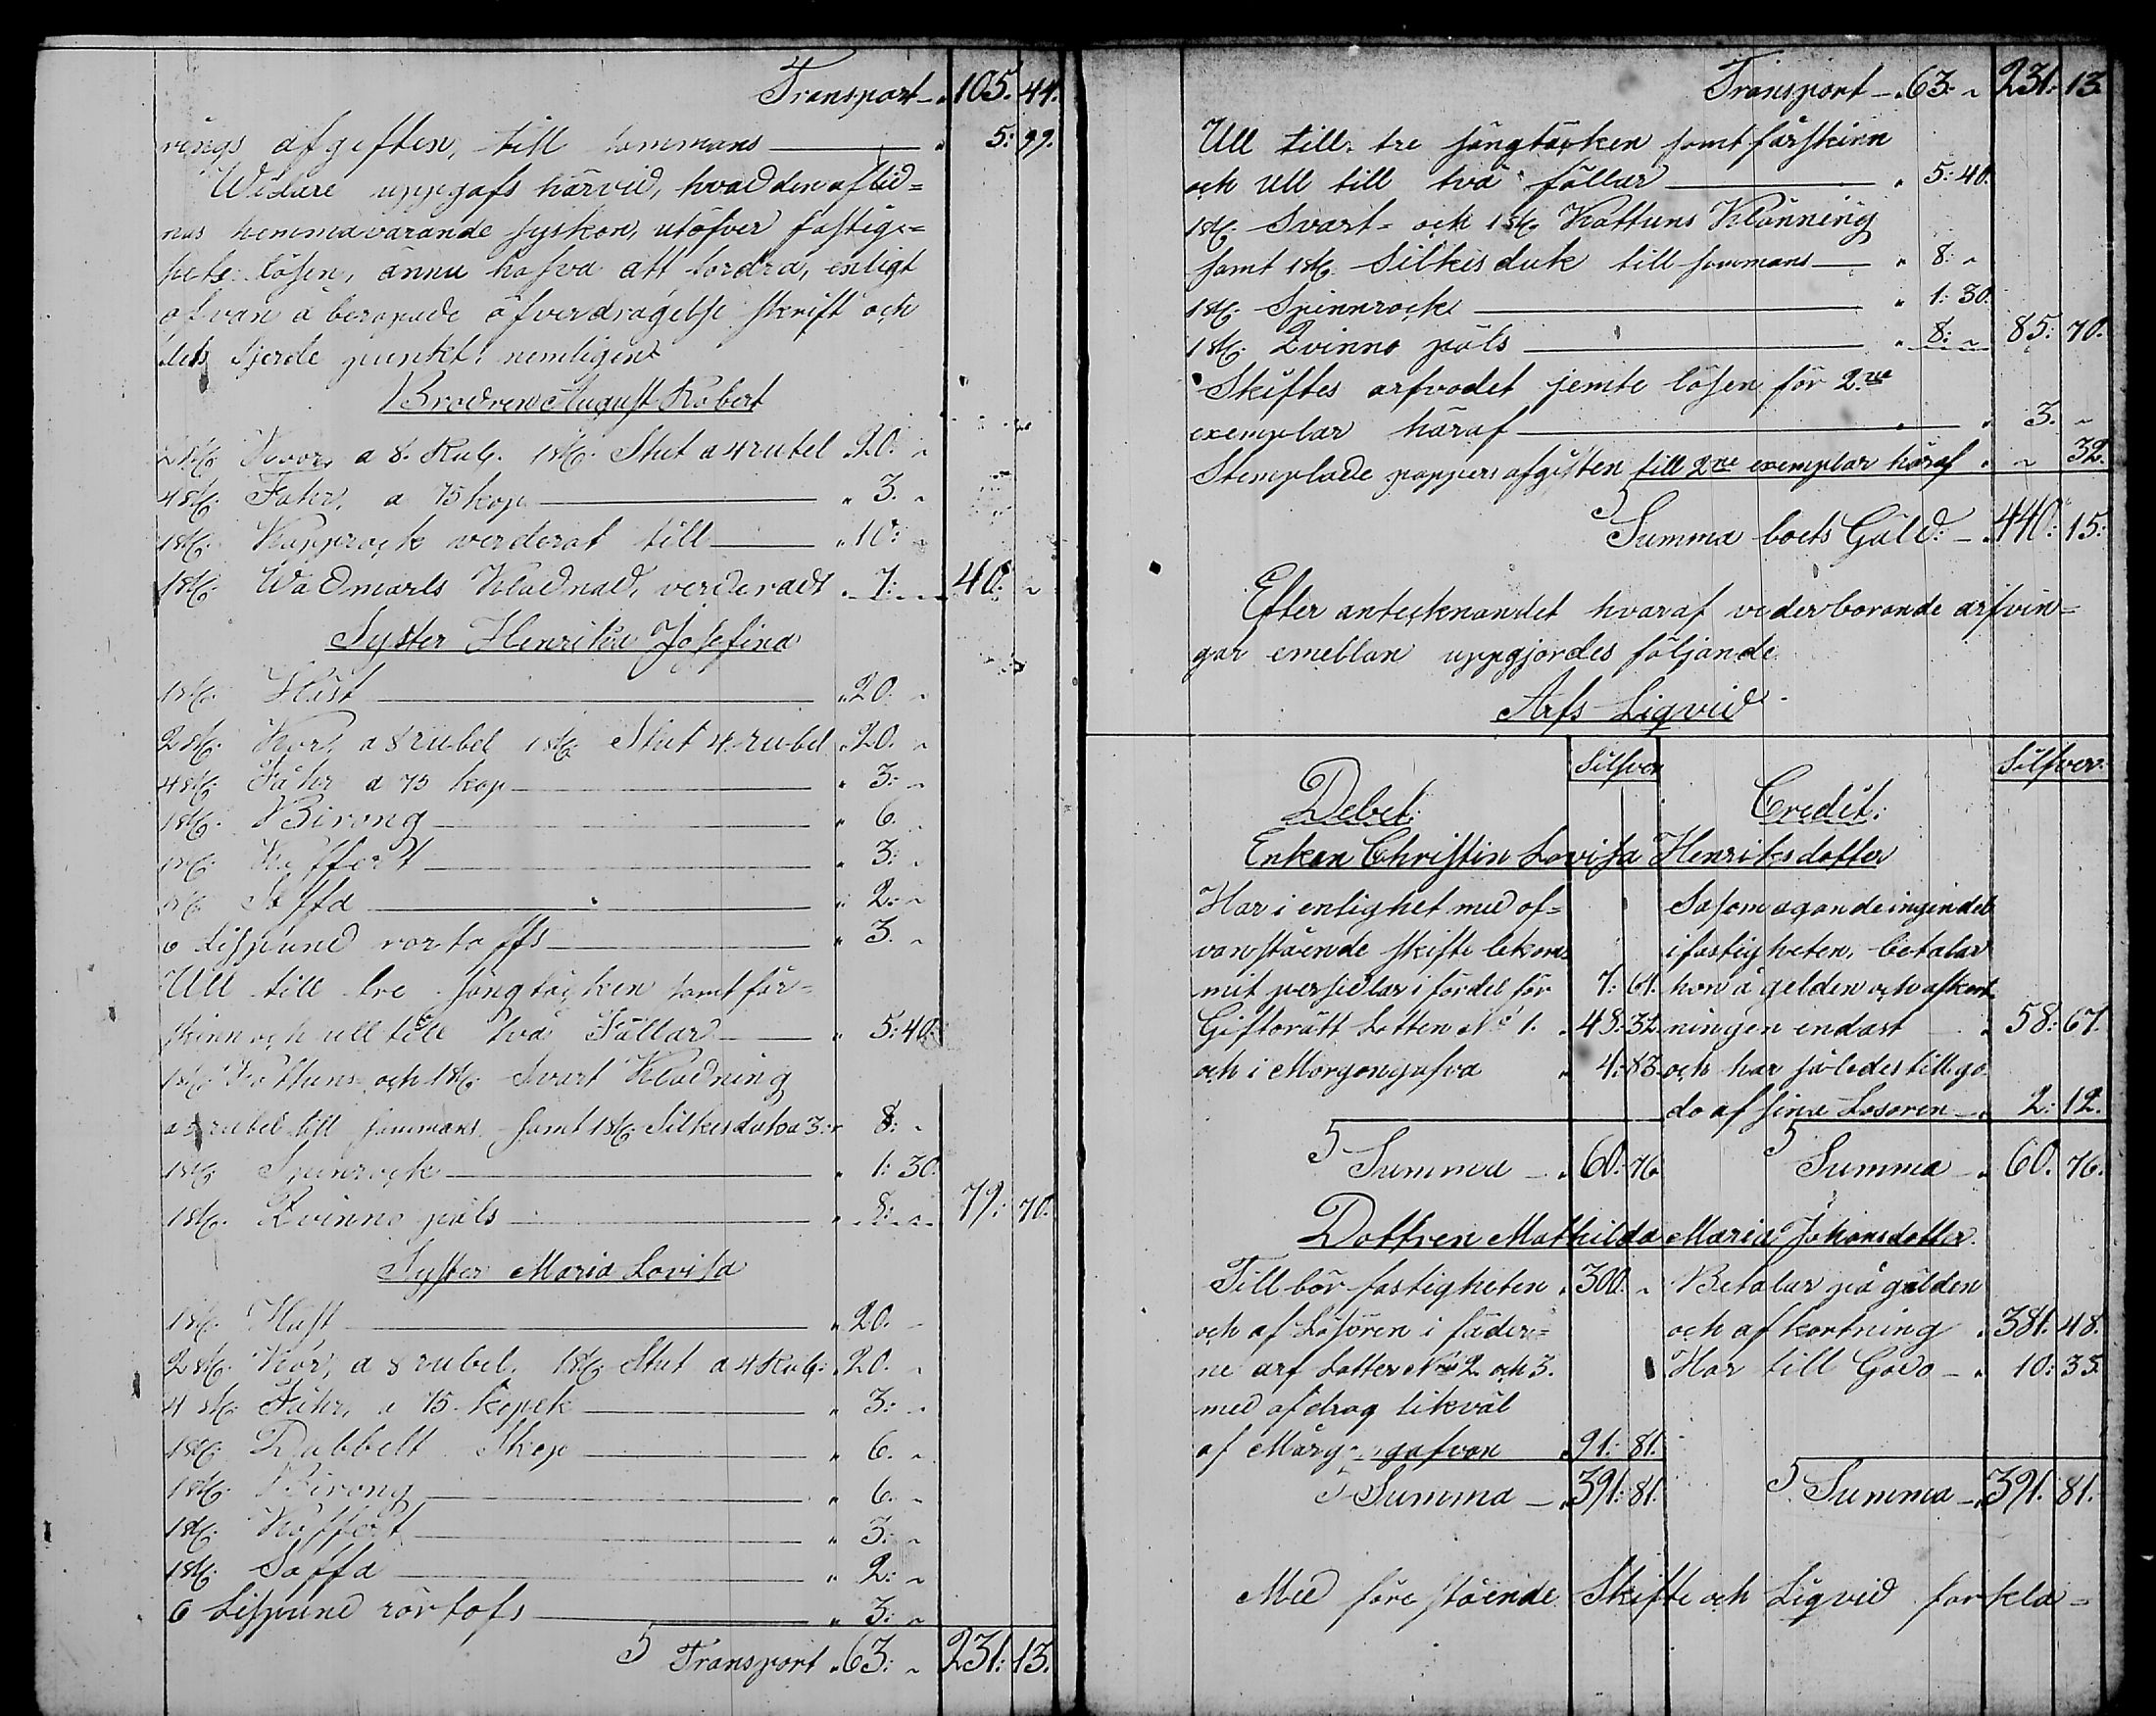 Transport — „ 105. 44.
rings afgiften, till sammans — „ 5: 99.
Widare uppgafs härvid, hvad den aflid=
nas hemmavarande syskon, utöfver fastighe=
tets lösen, ännu hafva att fordra, enligt
ofvan åberopade öfverdragelse skrift och
dets fjerde punkt, nemligen
Brodren August Robert
2 st. Kor, a 8. Rub. 1 st. Stut a 4 rubel „ 20. „
4 st. Fåhr, a 75 kop — „ 3. „
1 st. Kapprock verderat till — „ 10: „
1 st. Wadmarls Kladnad, verderadt „ 7: „ 40: „
Syster Henrika Josefina
1 st. Häst — „ 20. „
2 st. Kor, a 8 rubel 1 st. Stut 4 rubel „ 20. „
4 st. Fåhr a 75 kop — „ 3: „
1 st. Birong — „ 6. „
1 st. Koffert — „ 3: „
1 st. Soffa — „ 2: „
6 Lispund rortoffs — „ 3. „
Ull till tre sängtäcken samt får=
skinn och ull till två Fällar — „ 5: 40:
1 st. Kattuns och 1 st. Svart Kladning
a 5 rubel till sammans samt 1 st. Silkisduk a 3: „ 8: „
1 st. Spinrock — „ 1: 30.
1 st. Kvinno päls — „ 8: „ 79: 70.
Syster Maria Lovisa
1 st. Häst — „ 20. „
2 st. Kor, a 8 rubel, 1 st. Stut a 4 Rub: „ 20. „
4 st. Fåhr, a 75 kopek — „ 3: „
1 st. Dubbelt Skop — „ 6. „
1 st. Birong — „ 6. „
1 st. Koffert — „ 3: „
1 st. Soffa — „ 2: „
6 Lispund rörtofs — „ 3: „
S Transport „ 63: „ 231: 13.
Transport — „ 63: „ 231: 13.
Ull till tre sängtäcken samt fårskinn
och Ull till två fällar — „ 5: 40.
1 st. Svart- och 1 st. Kattuns Klänning
samt 1 st. Silkisduk till sammans — „ 8: „
1 st. Spinnrock — „ 1: 30.
1 st. Qvinno päls — „ 8: „ 85: 70.
Skiftes arfvodet jemte lösen för 2ne
exemplar häraf — „ 3. „
Stemplade pappers afgiften till 2ne exemplar häraf „ „ 32.
S Summa boets Gäld: — „ 440: 15:
Efter antecknandet hvaraf vederborande arfvin=
gar emellan uppgjordes följande
Arfs Liqvid
Silfver Silfver.
Debet: Credit:
Enkan Christin Lovisa Henriksdotter
Har i enlighet med of= Såsom agande ingen del
vanstående skifte bekom= i fastigheten, betalar
mit persedlar i fördel för 7: 61. hon å gelden och afkort
Giftorätt Lotten No 1. „ 48: 32. ningen endast „ 58: 67.
och i Morgongafva „ 4: 83. och har således tillgo
do af sina Lösören — „ 2: 12.
S Summa — „ 60: 76 S Summa — „ 60. 76.
Dottren Mathilda Maria Johansdotter
Till bör fastigheten „ 300. „ Betalar på gälden
och af Lösören i fäder= och afkortning „ 381: 48.
ne arf Lotter No 2 och 3. Har till Godo — „ 10: 35.
med afdrag likväl
af gafvan „ 91: 81.
S Summa — „ 391: 81. S Summa — „ 391. 81.
Med före stående Skifte och Liqvid forkla=